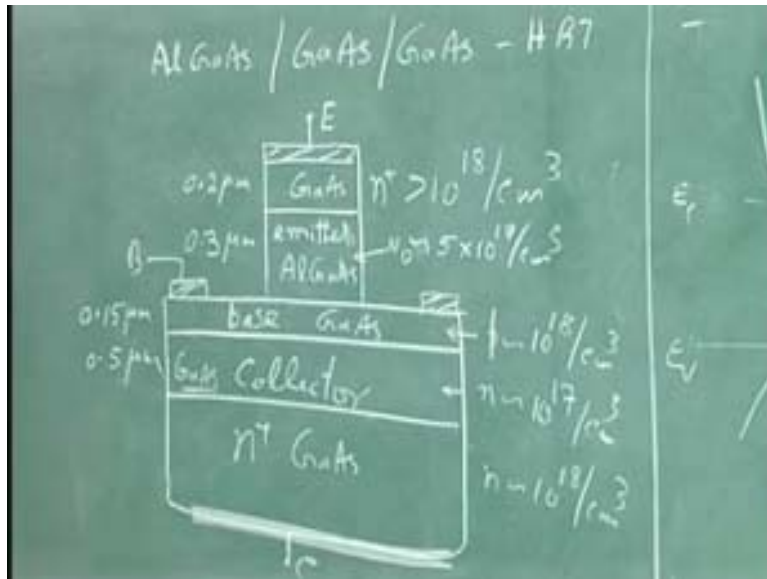 AlGaAs / GaAs / GaAs - HBT
E
0.2μm GaAs n⁺ > 10¹⁸/cm³
0.3μm emitter AlGaAs
B
0.15μm base GaAs p ~ 10¹⁸/cm³
0.5μm GaAs Collector n ~ 10¹⁷/cm³
n⁺ GaAs n ~ 10¹⁸/cm³
C
E_V